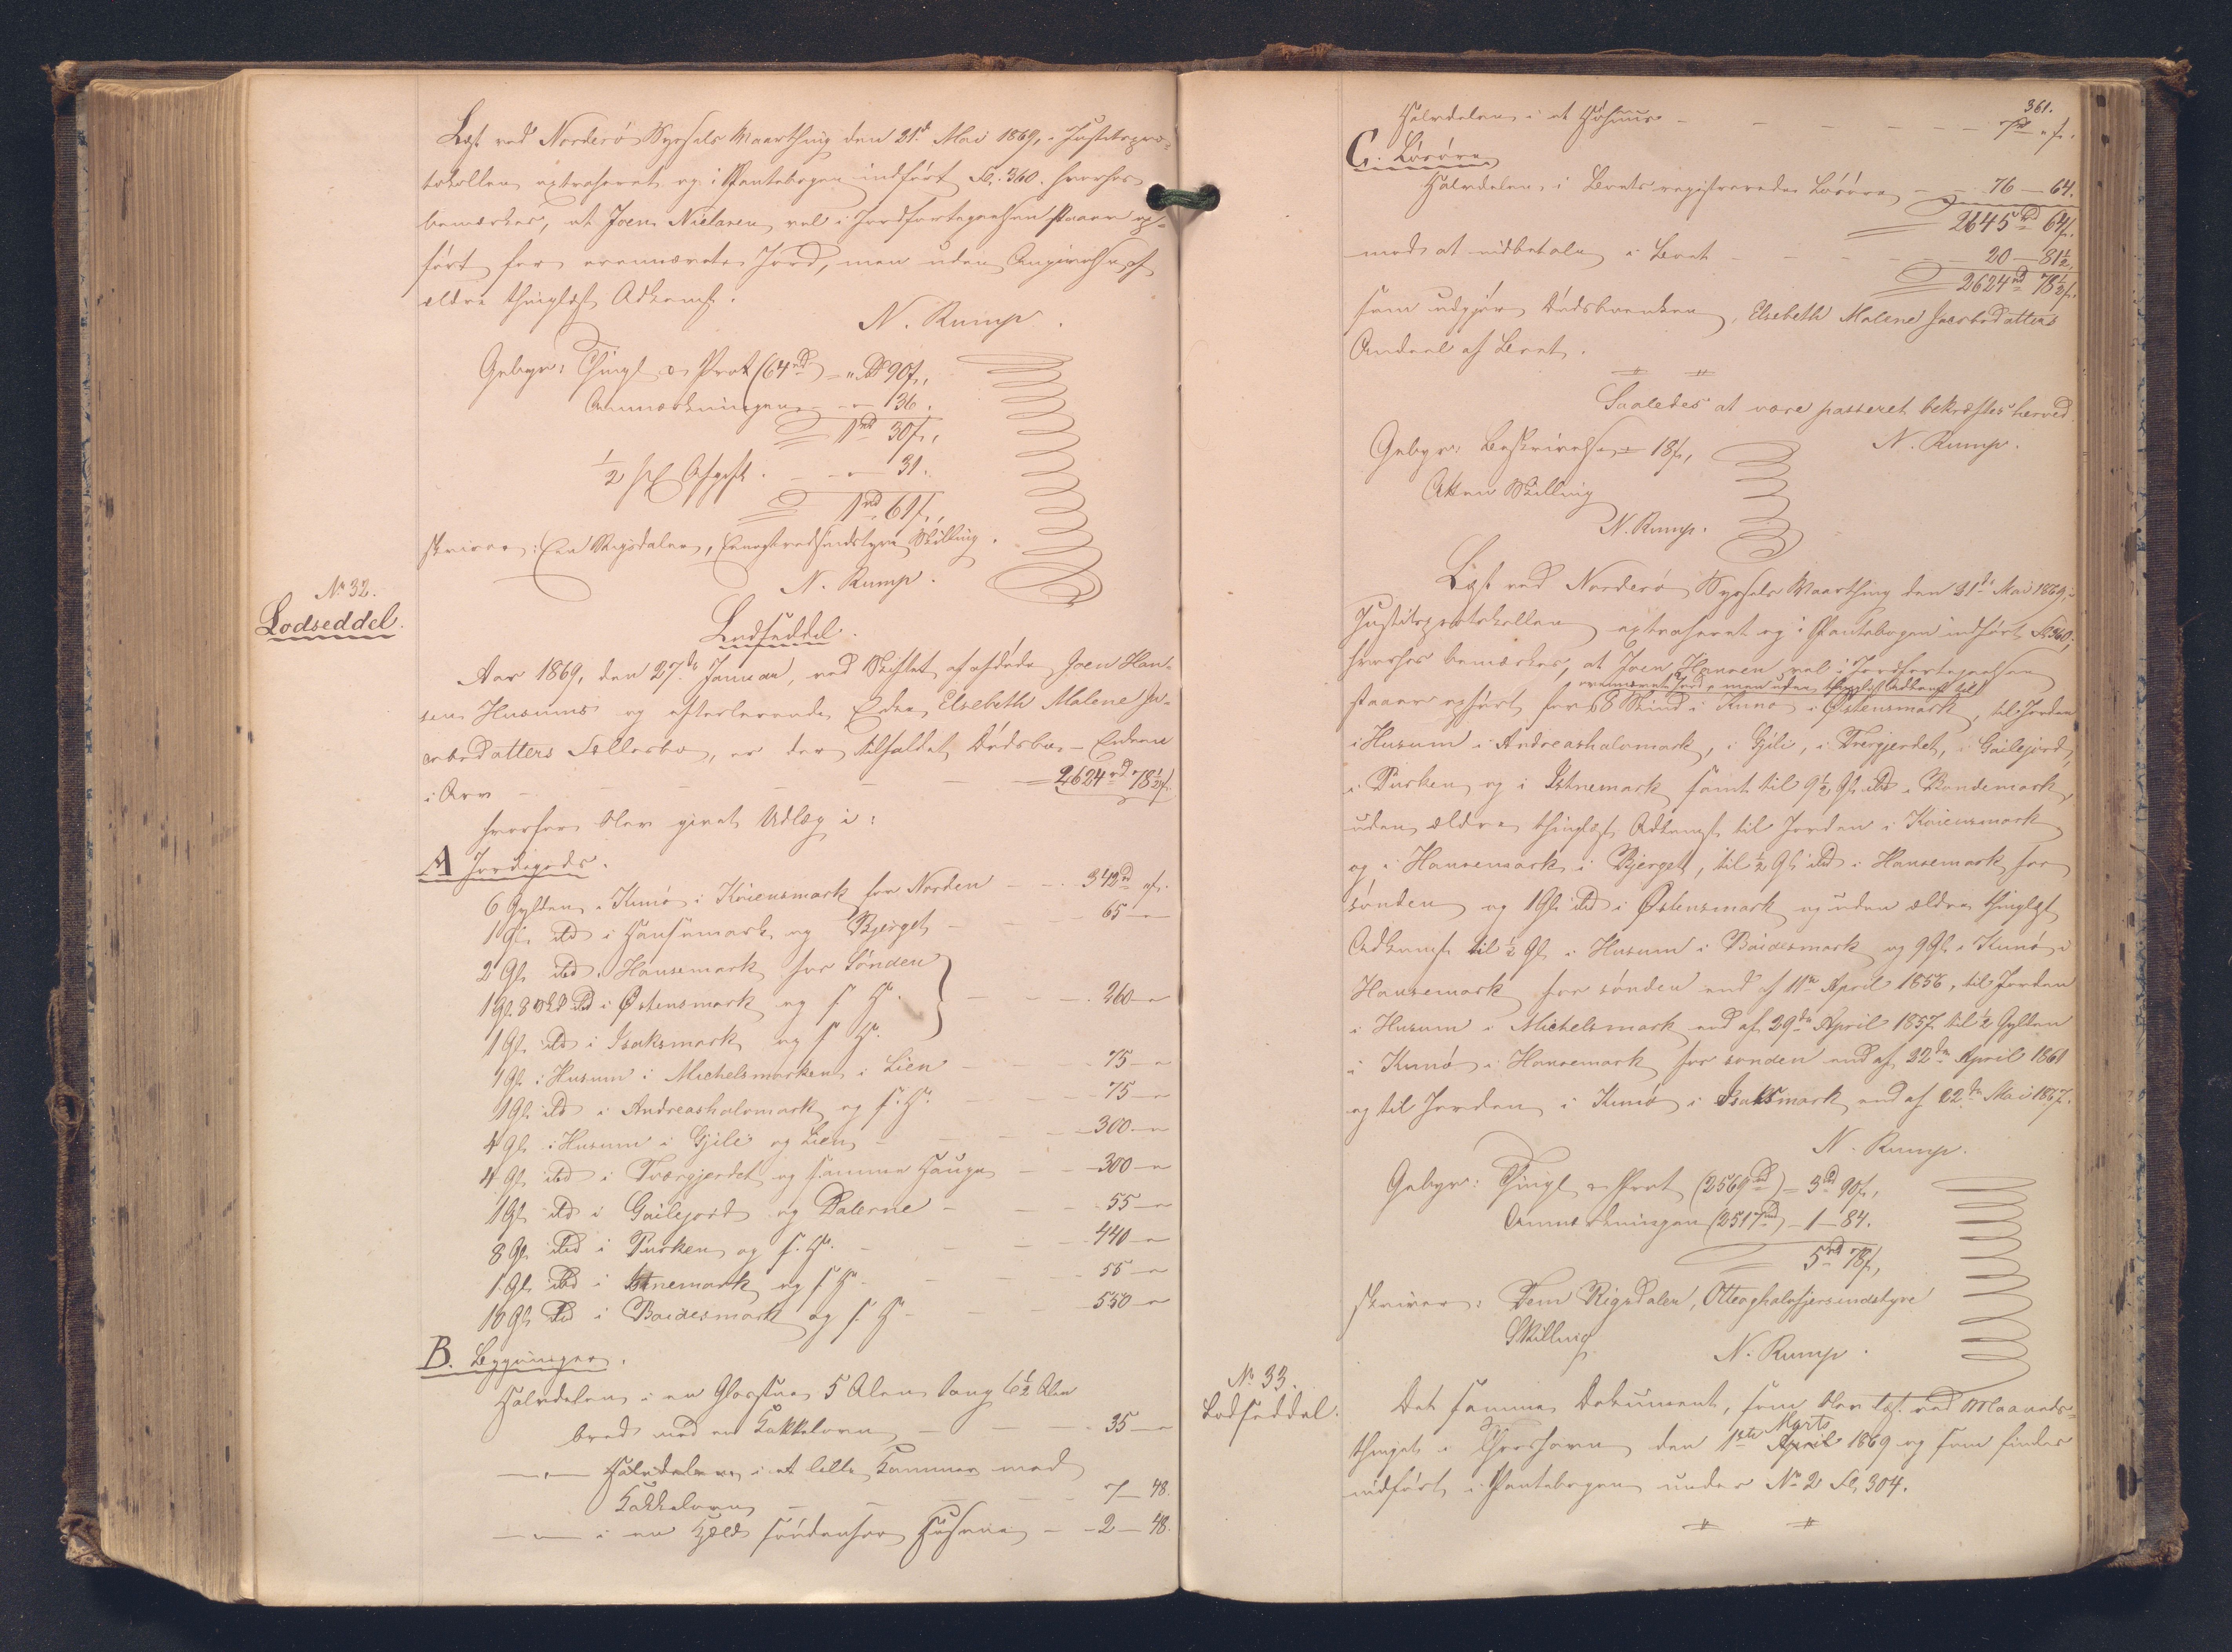 Læst ved Norderø Syssels Vaarthing den 21de Mai 1869, i Justitspro-
tokollen extraheret og i Pantebogen indført Fol. 360. hvorhos
bemærkes, at Joen Nielsen vel i Jordfortegnelsen staaer op-
ført for ovennævnte Jord, men uden Angivelse af
ældre thinglæst Adkomst.
N. Rump.
Gebyr: Thingl. & Prot (64rd) = " rd 90 s.,
Anmærkningen - " - 136.
1rd 30 s.,
1/2 pCt Afgift. - " - 31.
1rd 61 s.,
skriver: Een Rigsdaler, Eenogtredsindstyve Skilling.
N. Rump.
No 32.
Lodseddel.
Lodseddel.
Aar 1869, den 27de Januar, ved Skiftet af afdøde Joen Han-
sen Husums og efterlevende Enke, Elsebeth Malene Ja-
cobsdatters Fællesbo, er der tilfaldet Dødsbo-Enken
i Arv - - - - - 2624rd 78½ s.
hvorfor blev givet Udlæg i:
A Jordegods.
6 Gylden i Kunø i Koiensmark for Norden - - 342rd " s.
1 Gl. ibd i Hansemark og Bjerget - 65 - "
2 Gl. ibd i Hansemark for Sønden
1 Gl. 8 Skd ibd i Østensmark og s. H. - - - 260 - "
1 Gl. ibd i Isaksmark og s. H.
1 Gl. i Husum i Michelsmarken i Lien - - 75 - "
1 Gl. ibd i Andreashalvmark og s. H. - - 75 - "
4 Gl. i Husum i Gjili og Lien - - 300 - "
4 Gl. ibd i Tværgjerdet og samme Hauge - - 300 - "
1 Gl. ibd i Gailejord og Dalerne - - 55 - "
8 Gl. ibd i Purken og s. H. - - 440 - "
1 Gl. ibd i Istnemark og s. H. - - 55 - "
10 Gl. ibd i Baidesmark og s. H. - - 550 - "
B. Bygninger.
Halvdelen i en Glasstue 5 Alen lang 6½ Alen
bred med en Kakkelovn - - 35 - "
- " - Halvdelen i et lille Kammer med
Kakkelovn - - - 7 - 48.
- " - i en Hjeld søndenfor Husene - - 2 - 48.
361.
Halvdelen i et Høhuus - - - - - 7rd " s.
C. Løsøre
Halvdelen i Boets registrerede Løsøre - - 76 - 64.
2645rd 64 s.
mod at indbetale i Boet - - - 20 - 81½
2624rd 78½ s.
som udgjør Dødsboenken, Elsebeth Malene Jacobsdatters
Andeel af Boet.
Saaledes at være passeret bekræftes herved
N. Rump.
Gebyr: Beskrivelse = 18 s.,
Atten Skilling
N. Rump.
Læst ved Norderø Syssels Vaarthing den 21de Mai 1869, i
Justitsprotokollen extraheret og i Pantebogen indført Fol. 360,
hvorhos bemærkes, at Joen Hansen vel i Jordfortegnelsen
ovennævnte Jord, men uden thinglæst Adkomst til
staaer opført for 68 Skind i Kunø i Østensmark, til Jorden
i Husum i Andreashalvmark, i Gjili, i Tvergjerdet, i Gailejord,
i Purken og i Istnemark samt til 9½ Gl. ibd i Bondemark,
uden ældre thinglæst Adkomst til Jorden i Koiensmark
og i Hansemark i Bjerget, til ½ Gl. ibd i Hansemark for
sønden og 1 Gl. ibd i Østensmark og uden ældre thinglæst
Adkomst til ½ Gl. i Husum i Baidesmark og 9 Gl. i Kunø i
Hansemark for sønden end af 11te April 1856, til Jorden
i Husum i Michelsmark end af 29de April 1857 til ½ Gylden
i Kunø i Hansemark for sønden end af 22de April 1861
og til Jorden i Kunø i Isaksmark end af 22de Mai 1867.
N. Rump.
Gebyr: Thingl. & Prot (2569rd) = 3rd 90 s.,
Anmærkningen (2517rd) - 1 - 84.
5rd 78 s.,
skriver: Fem Rigsdaler, Otteoghalvfjersindstyve
Skilling.
N. Rump.
No 33.
Lodseddel.
Det samme Dokument, som blev læst ved Maaneds-
thinget i Thorshavn den 1ste April Marts 1869 og som findes
indført i Pantebogen under No 2 Fol. 304.